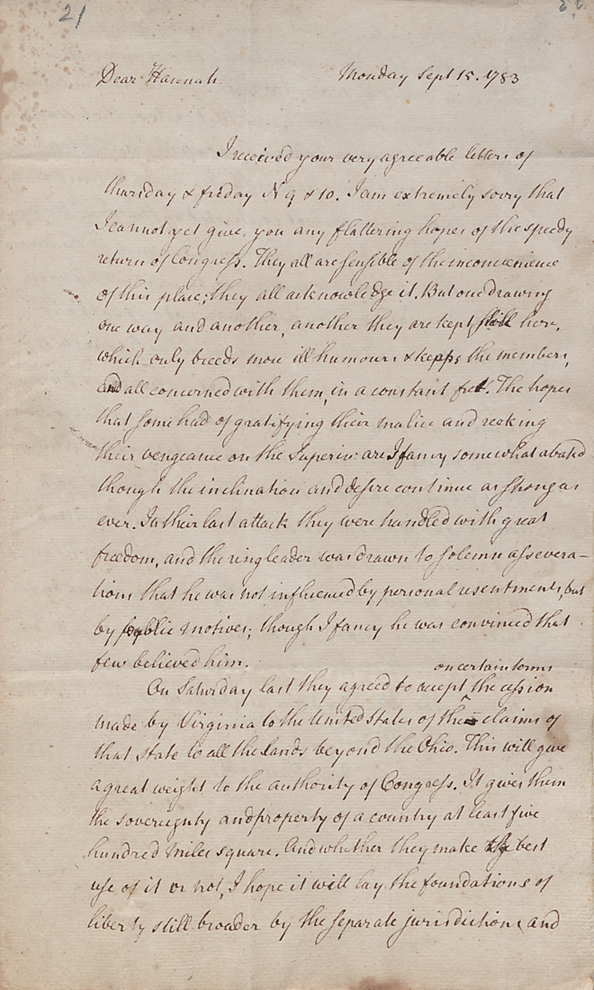 21
Dear Hannah Monday Sept 15. 1783
I received your very agreeable letters of
thursday & friday N 9 & 10. I am extremely sorry that
I cannot yet give you any flattering hopes of the speedy
return of Congress. They all are sensible of the inconvenience
of this place; they all acknowledge it. But one drawing
one way and another, another they are kept still here,
which only breeds more ill humour & kepps the members,
and all concerned with them, in a constant fret. The hopes
that some had of gratifying their malice and reeking
their vengeance on the Superin: are I fancy somewhat abated
though the inclination and desire continue as strong as
ever. In their last attack they were handled with great
freedom, and the ringleader was drawn to solemn assevera-
tions that he was not influenced by personal resentments, but
by public motives; though I fancy he was convinced that
few believed him.
on certain terms
On Saturday last they agreed to accept ^ the cession
made by Virginia to the United States of the claims of
that state to all the lands beyond the Ohio. This will give
a great weight to the authority of Congress. It gives them
the sovereignty and property of a country at least five
hundred miles square. And whether they make the best
use of it or not, I hope it will lay the foundations of
liberty still broader by the separate jurisdictions, and